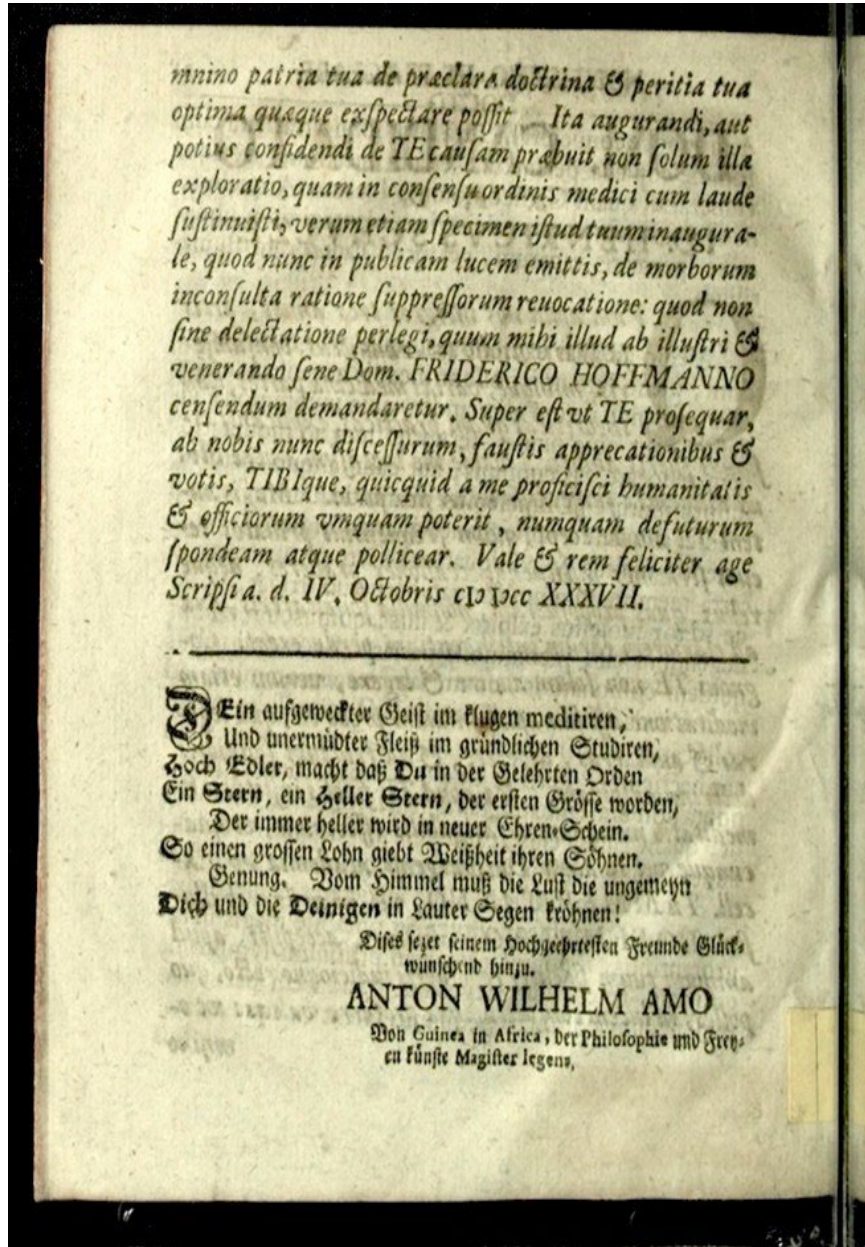 mnino patria tua de præclara doctrina & peritia tua
optima quæque exſpectare poſſit Ita augurandi, aut
potius confidendi de TE cauſam præbuit non ſolum illa
exploratio, quam in conſenſu ordinis medici cum laude
ſuſtinuiſti, verum etiam ſpecimen iſtud tuum inaugura-
le, quod nunc in publicam lucem emittis, de morborum
inconſulta ratione ſuppreſſorum reuocatione: quod non
ſine delectatione perlegi, quum mihi illud ab illuſtri &
venerando ſene Dom. FRIDERICO HOFFMANNO
cenſendum demandaretur. Super eſt vt TE proſequar,
ab nobis nunc diſceſſurum, fauſtis apprecationibus &
votis, TIBIque, quicquid a me proficiſci humanitatis
& officiorum vmquam poterit, numquam defuturum
ſpondeam atque pollicear. Vale & rem feliciter age
Scripſi a. d. IV. Octobris cIↃ IↃcc XXXVII.
DEin aufgeweckter Geiſt im klugen meditiren,
Und unermüdter Fleiß im gründlichen Studiren,
Hoch Edler, macht daß Du in der Gelehrten Orden
Ein Stern, ein Heller Stern, der erſten Gröſſe worden,
Der immer heller wird in neuer Ehren-Schein.
So einen groſſen Lohn giebt Weißheit ihren Söhnen.
Genung. Vom Himmel muß die Luſt die ungemeyn
Dich und die Deinigen in Lauter Segen kröhnen!
Diſes ſezet ſeinem Hochgeehrteſten Freunde Glück-
wünſchend hinzu.
ANTON WILHELM AMO
Von Guinea in Africa, der Philoſophie und Frey-
en künſte Magiſter legens,